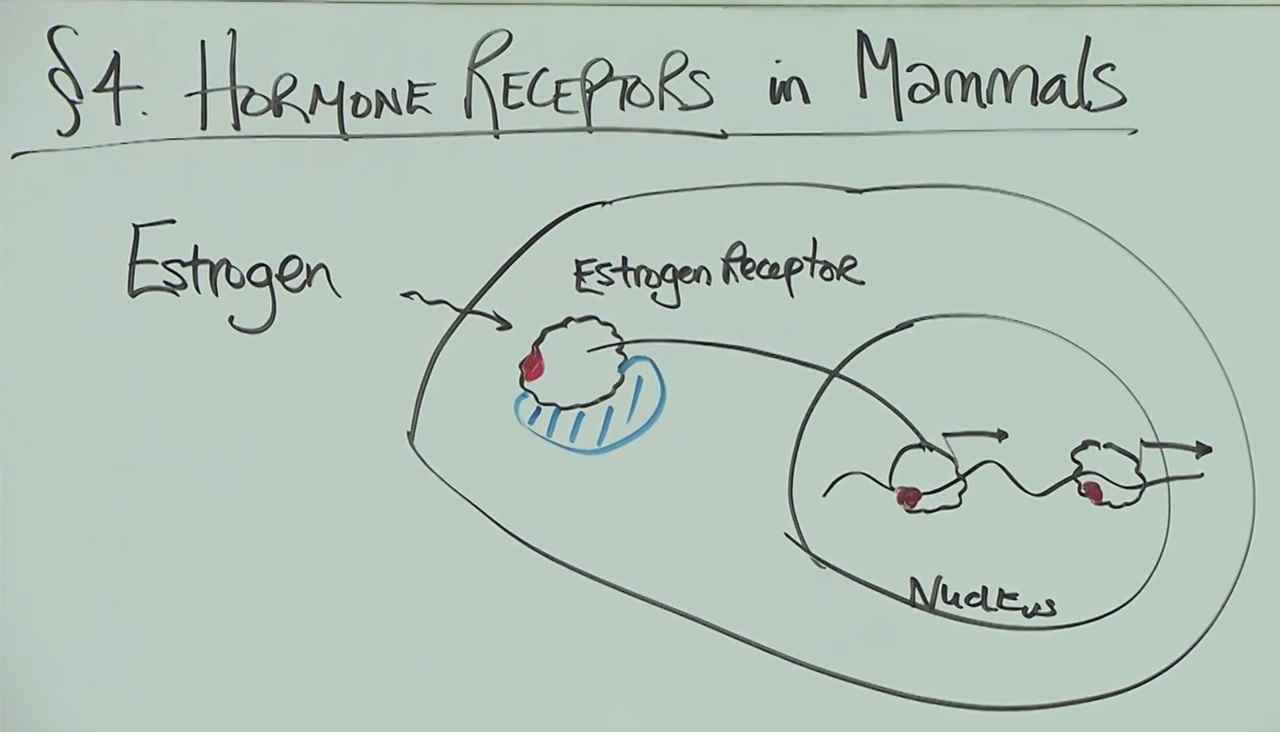 §4. HORMONE RECEPTORS in Mammals
Estrogen
Estrogen Receptor
Nucleus